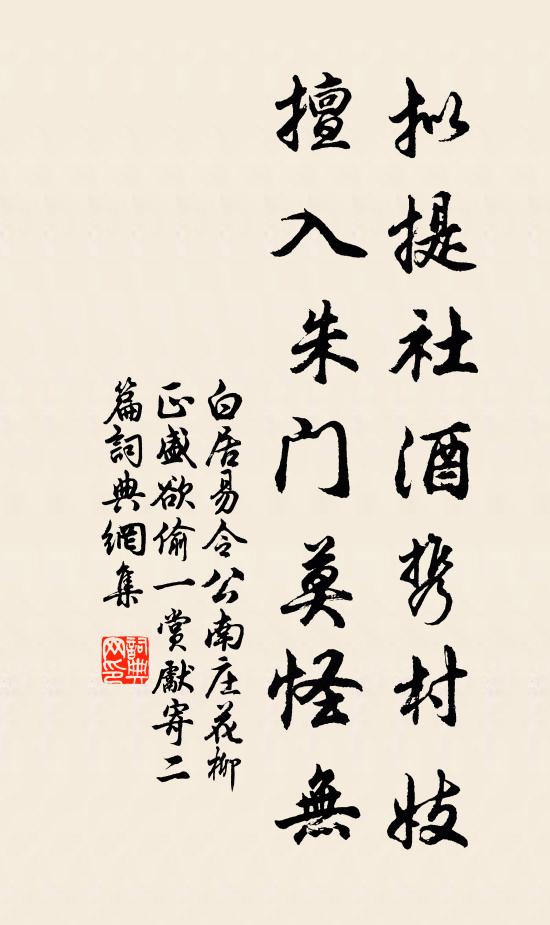 拟提社酒携村妓
擅入朱门莫怪無
白居易令公南庄花柳
正盛欲偷一赏獻寄二
篇詞典網集
詞典网印